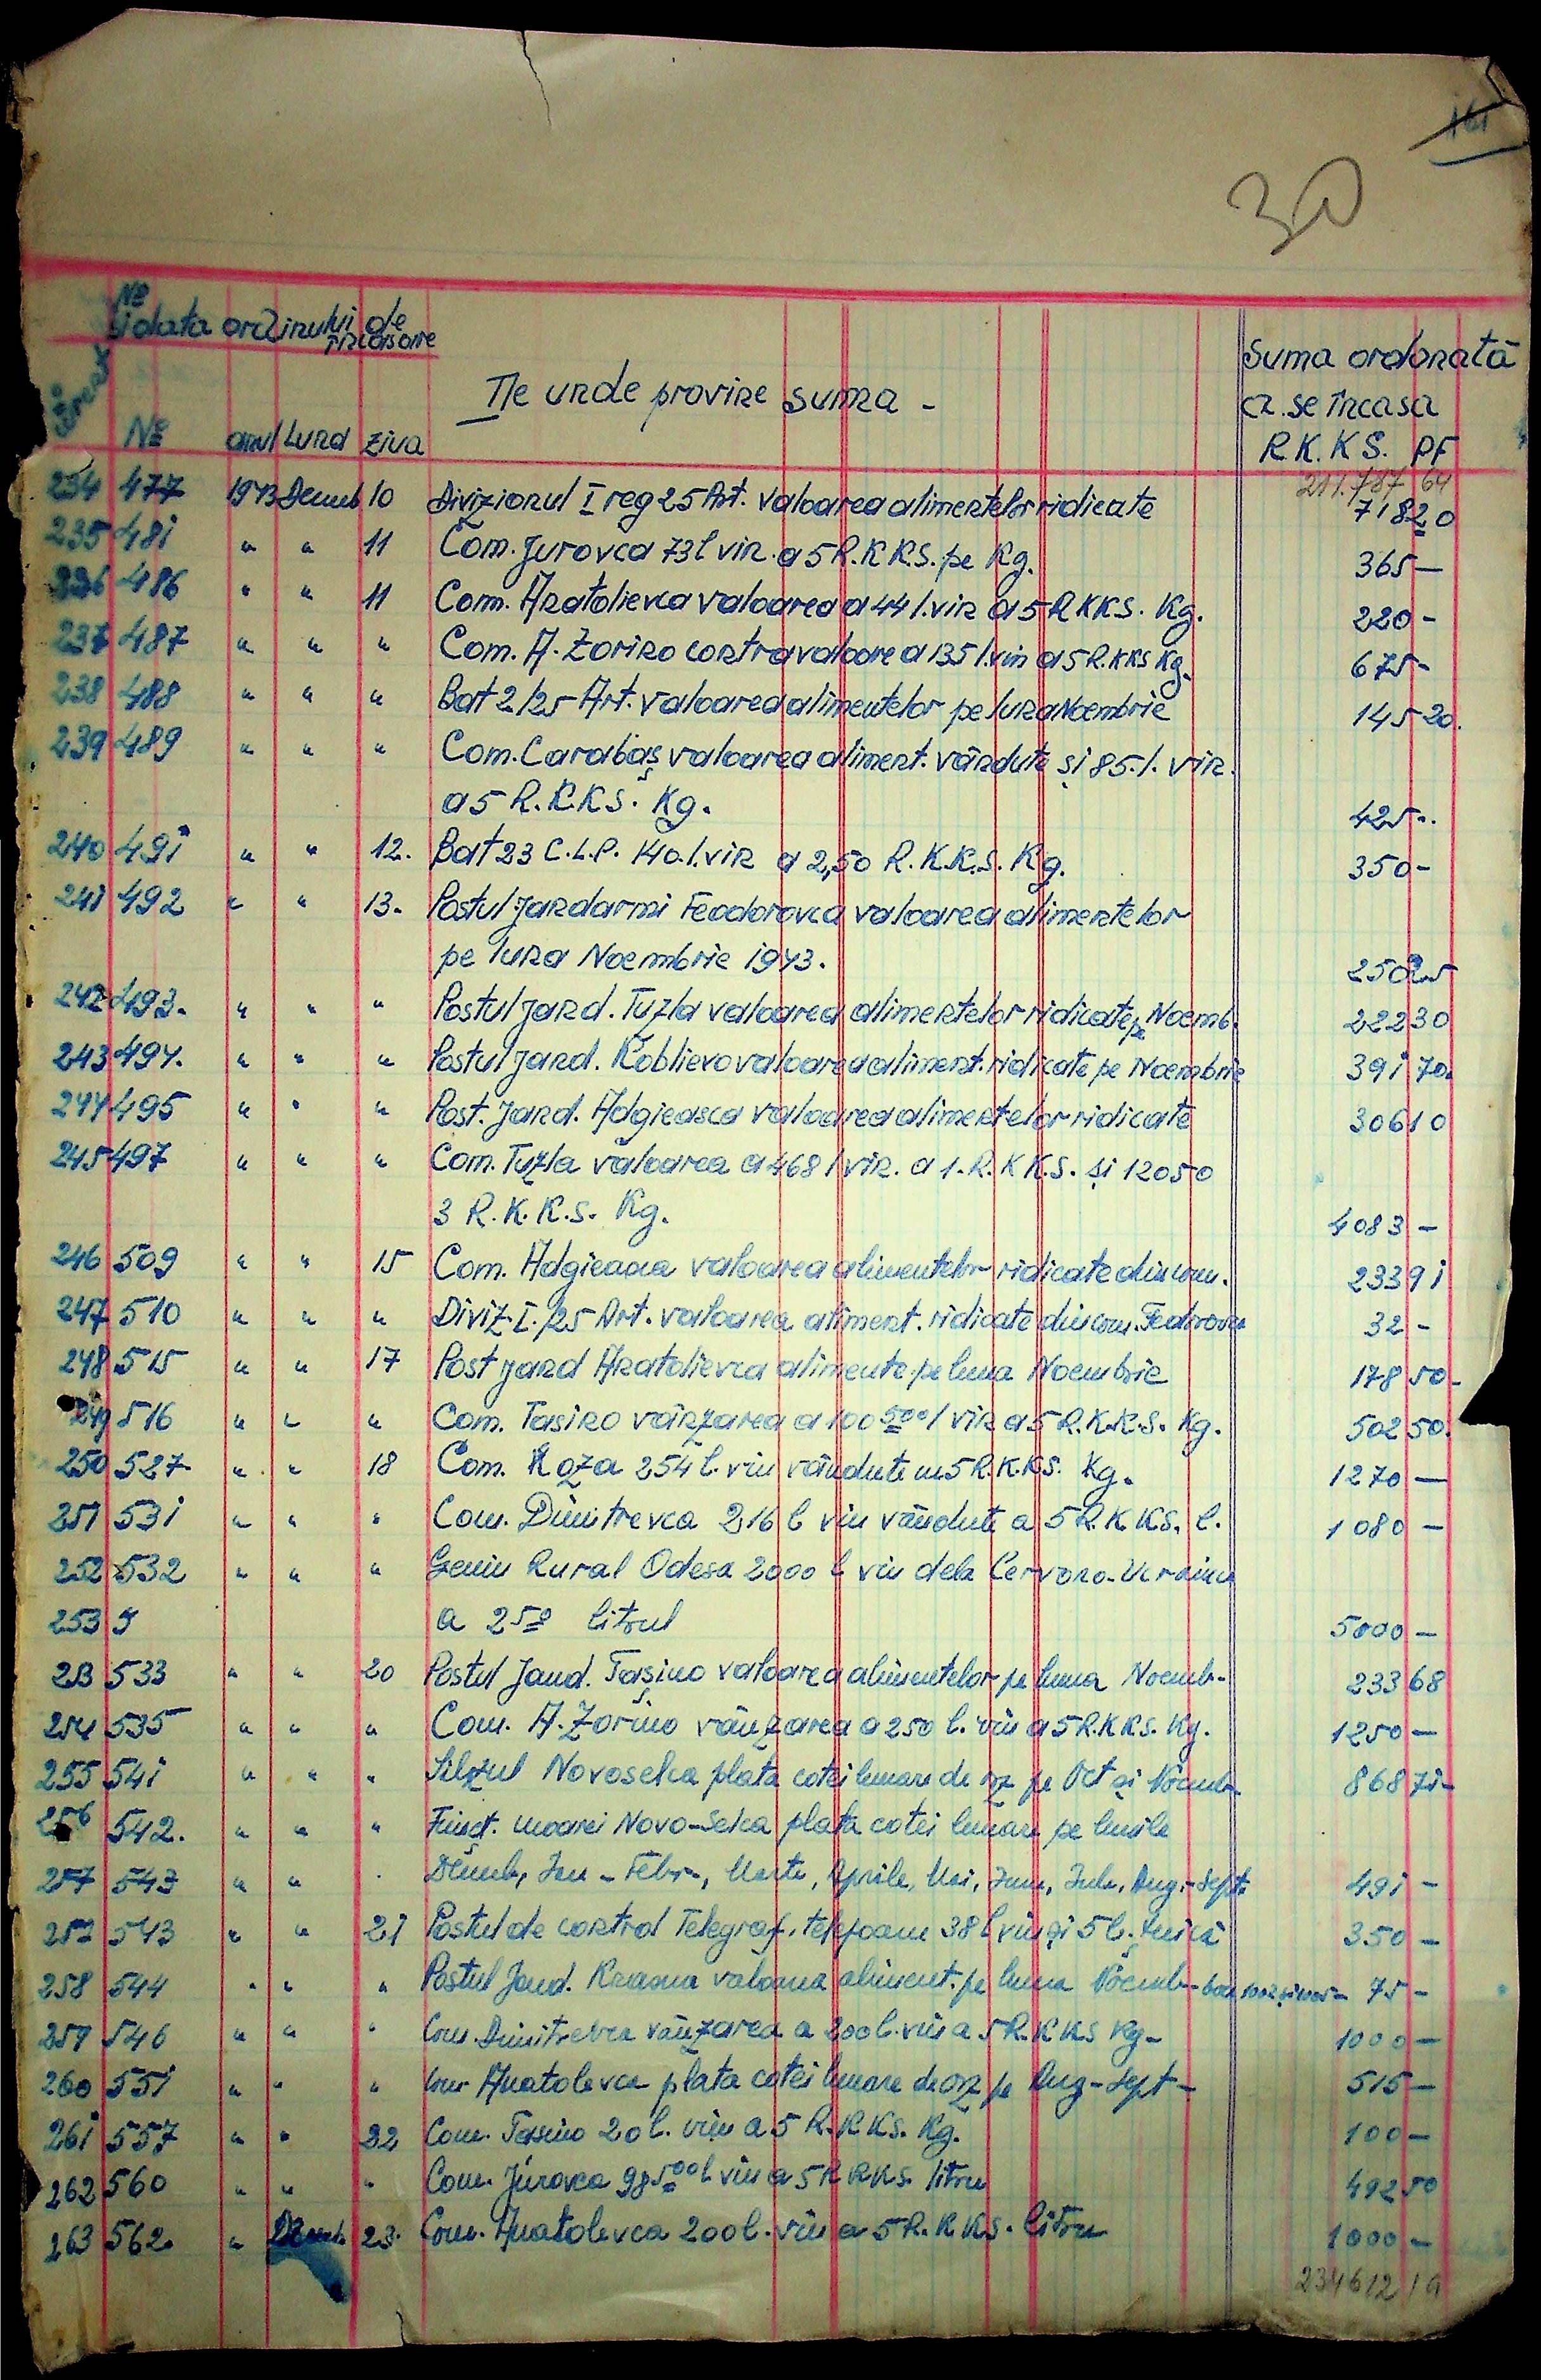 161
30
№
și data ordinului de
încasare
№ anul Luna ziua
De unde provine suma -
Suma ordonată
a se încasa
R.K.K.S. PF
211.787 64
234 477 1943 Decemb 10 Divizionul I reg 25 Art. Valoarea alimentelor ridicate 718 20
235 481 " " 11 Com. Jurovca 73 l vin. a 5 R.K.K.S. pe Kg. 365 —
236 486 " " 11 Com. Anatolievca valoarea a 44 l. vin a 5 R K K S. Kg. 220 -
237 487 " " " Com. A. Zorino contravaloarea 135 l. vin a 5 R.KKS Kg. 675 -
238 488 " " " Bat 2/25 Art. Valoarea alimentelor pe luna Noembrie 145 20.
239 489 " " " Com. Carabaș valoarea aliment. vândute și 85. l. vin.
a 5 R.K.K.S. Kg. 425 -.
240 491 " " 12. Bat 23 C.L.P. 140. l. vin a 2,50 R.K.K.S. Kg. 350 -
241 492 " " 13. Postul jandarmi Feodorovca valoarea alimentelor
pe luna Noembrie 1943. 250 25
242 493. " " " Postul jand. Tuzla valoarea alimentelor ridicate pe Noemb. 222 30
243 494. " " " Postul jand. Koblievo valoarea aliment. ridicate pe Noembrie 391 70.
244 495 " " " Post. jand. Adgieasca valoarea alimentelor ridicate 306 10
245 497 " " " Com. Tuzla valoarea a 468 l vin. a 1. R.K.K.S. și 1205 0
3 R.K.K.S. Kg. 4083 —
246 509 " " 15 Com. Adgieasca valoarea alimentelor ridicate din com. 233 91
247 510 " " " Diviz. I. /25 Art. valoarea aliment. ridicate din com. Fedorovca 32 -
248 515 " " 17 Post jand Anatolievca alimente pe luna Noembrie 178 50 -
249 516 " " " Com. Tasino vânzarea a 100 500 l vin a 5 R.K.K.S. Kg. 502 50.
250 527 " " 18 Com. Roza 254 l. vin vândute cu 5 R.K.KS. Kg. 1270 —
251 531 " " " Com. Dimitrevca 216 l vin vândute a 5 R.K.KS. l. 1080 —
252 532 " " " Geniu Rural Odesa 2000 l vin dela Cervono-Ucrainca
253 5 a 2 50 litrul 5000 —
253 533 " " 20 Postul Jand. Tașino valoarea alimentelor pe luna Noemb- 233 68
254 535 " " " Com. A. Zorino vânzarea a 250 l. vin a 5 R.K KS. Kg. 1250 —
255 541 " " " Silozul Novoselca plata cotei lunare de orz pe Oct și Noemb- 868 71 -
256 542. " " " Funcț. moarei Novo-Selca plata cotei lunare pe lunile
257 543 " " . Decemb, Ian - Febr-, Marte, Aprile, Mai, Iunie, Iulie, Aug. - Sept. 491 -
257 543 " " 21 Postul de control Telegraf. telefoane 38 l vin și 5 l. țuică 350 —
258 544 " " " Postul Jand. Krasna valoarea aliment. pe luna Noemb- 75 -
259 546 " " " Com. Dimitrevca vânzarea a 200 l. vin a 5 R.K KS Kg - 1000 —
260 551 " " " Com. Anatolevca plata cotei lunare de orz pe Aug - Sept - 515 —
261 557 " " 22 Com. Tasino 20 l. vin a 5 R.K KS. Kg. 100 —
262 560 " " " Com. Jurovca 98 500 l vin a 5 R K KS. litru 492 50
263 562. " Decemb. 23. Com. Anatolevca 200 l. vin a 5 R.K KS. litru 1000 —
234612 19